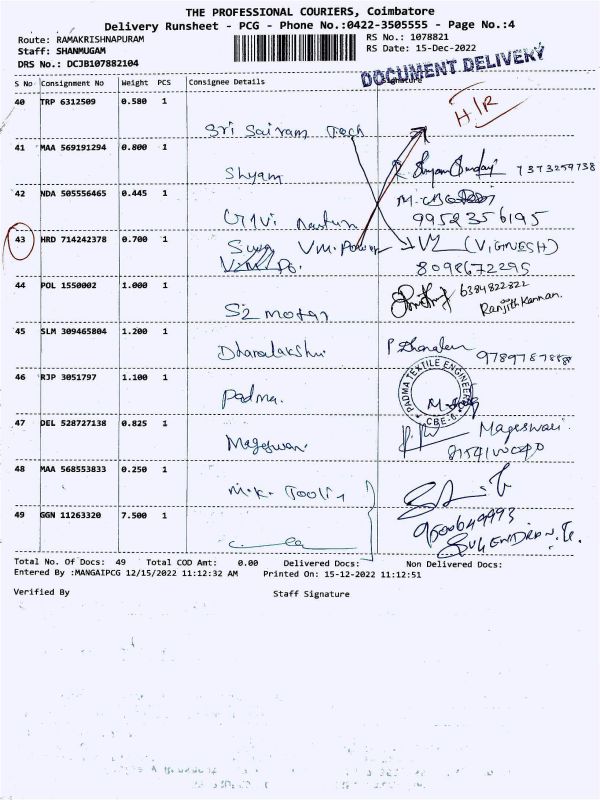 THE PROFESSIONAL COURIERS, Coimbatore
Delivery Runsheet - PCG - Phone No.:0422-3505555 - Page No.:4
Route: RAMAKRISHNAPURAM RS No.: 1078821
Staff: SHANMUGAM RS Date: 15-Dec-2022
DRS No.: DCJB107882104
DOCUMENT DELIVERY
S No Consignment No Weight PCS Consignee Details Signature
40 TRP 6312509 0.580 1
H/R
Sri Sairam Tech
41 MAA 569191294 0.800 1
Shyam 7373259738
42 NDA 505556465 0.445 1
9952356195
43 HRD 714242378 0.700 1
VM. Power (VIGNESH)
8098672295
44 POL 1550002 1.000 1
6384822322
S2 motar Ranjith Kannan.
45 SLM 309465804 1.200 1
Dhanalakshmi
46 RJP 3051797 1.100 1
PADMA TEXTILE ENGINEE
CBE-6
Padma.
47 DEL 528727138 0.825 1
Mageswari
Mageswari
48 MAA 568553833 0.250 1
M.K. Tooling
49 GGN 11263320 7.500 1
9600649993
SUGENDRAN
Total No. Of Docs: 49 Total COD Amt: 0.00 Delivered Docs: Non Delivered Docs:
Entered By :MANGAIPCG 12/15/2022 11:12:32 AM Printed On: 15-12-2022 11:12:51
Verified By Staff Signature